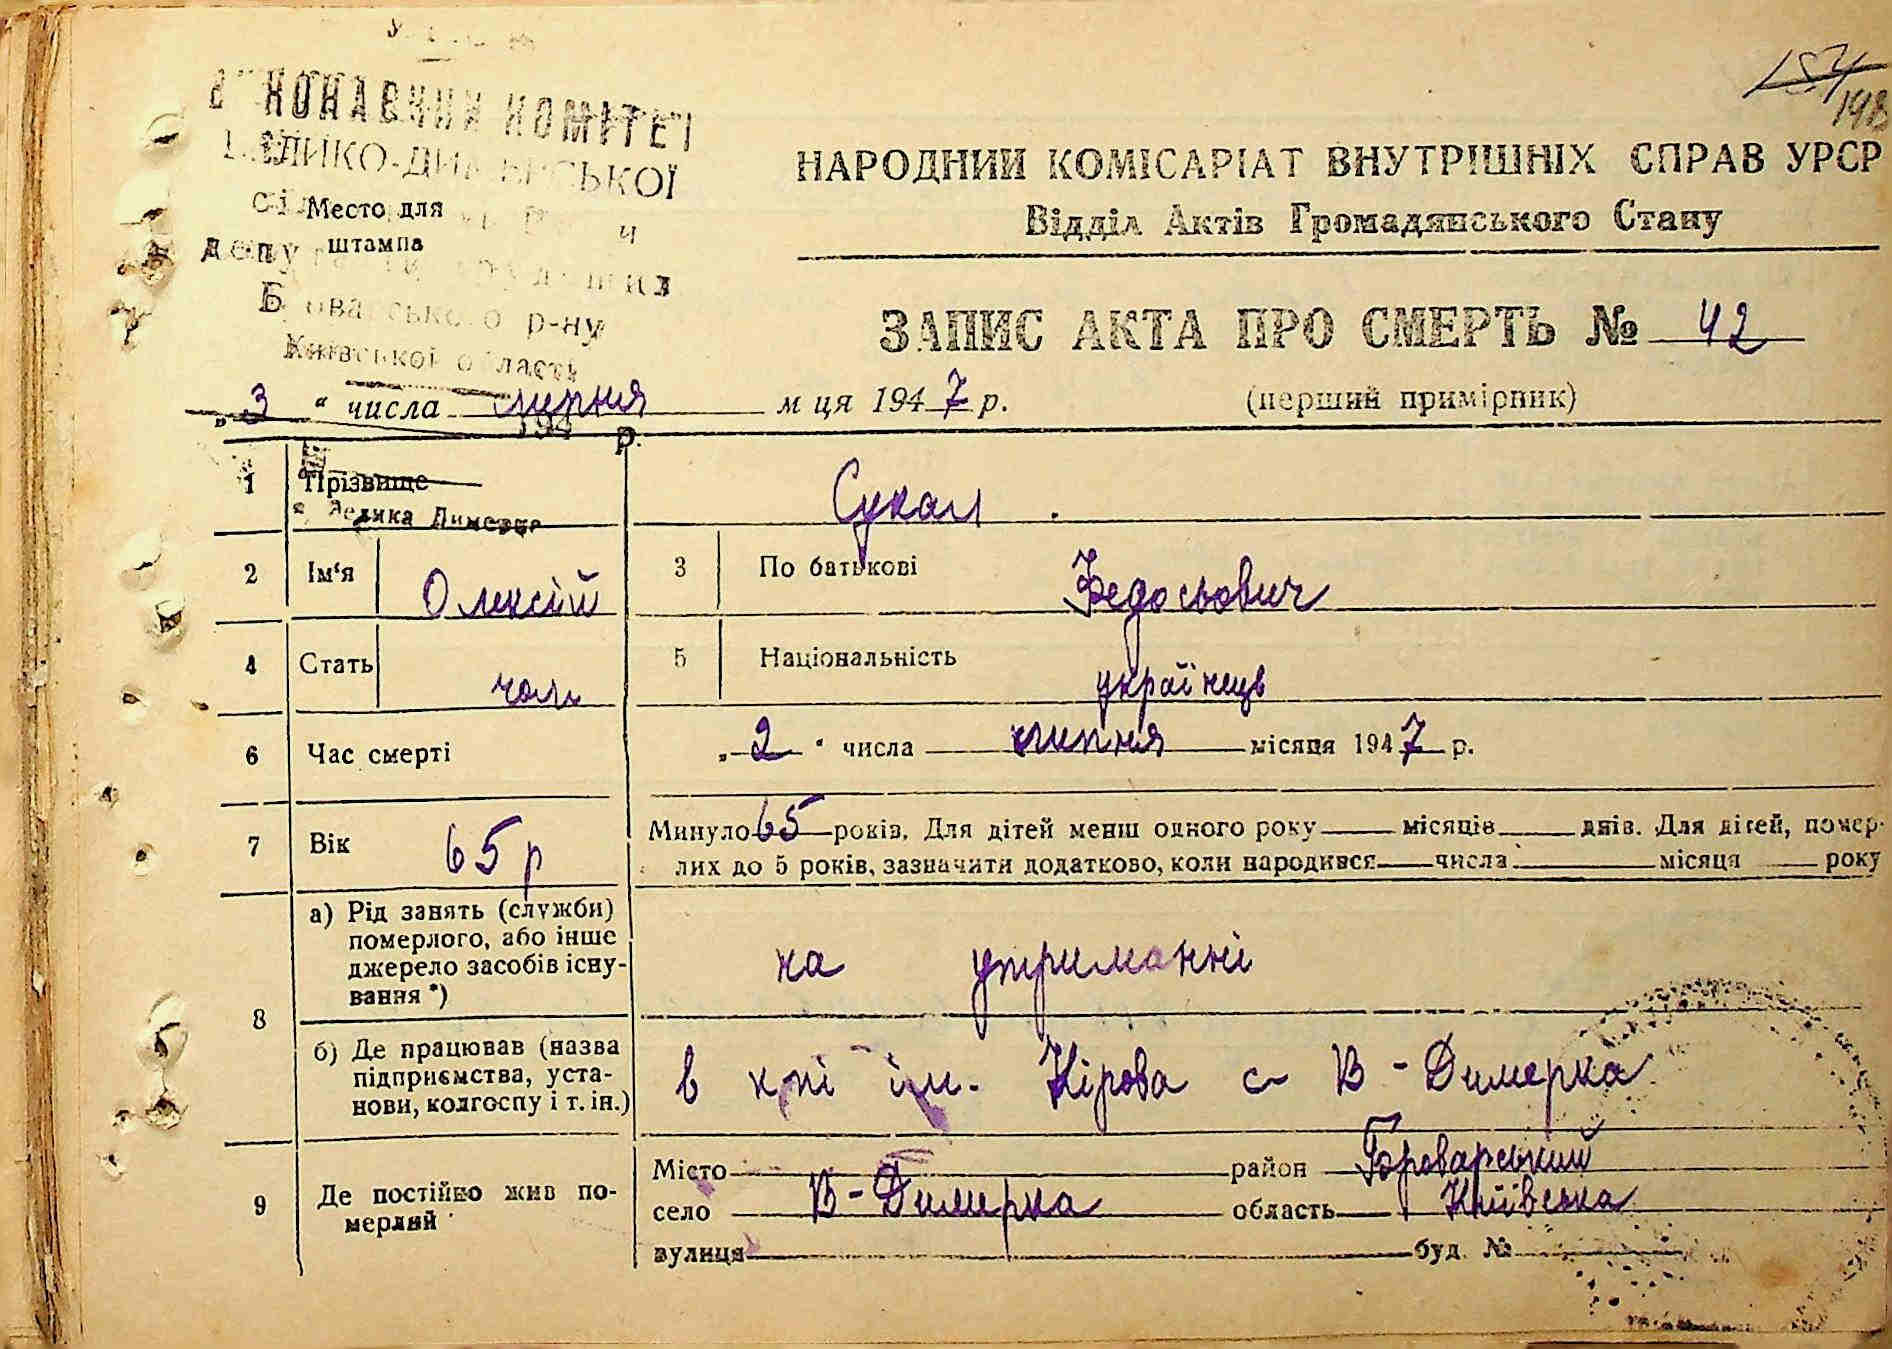 154
198
ВИКОНАВЧИЙ КОМІТЕТ
ВЕЛИКО-ДИМЕРСЬКОЇ
Место для
штампа
Броварського р-ну
Київської області
194 р.
Велика Димерка
НАРОДНИЙ КОМІСАРІАТ ВНУТРІШНІХ СПРАВ УРСР
Відділ Актів Громадянського Стану
ЗАПИС АКТА ПРО СМЕРТЬ № 42
„ 3 “ числа липня м ця 1947 р. (перший примірник)
1 Прізвище Сукал
2 Ім‘я Олексій 3 По батькові Федосьович
4 Стать чол 5 Національність українець
6 Час смерті „ 2 “ числа липня місяця 1947 р.
7 Вік 65 р Минуло 65 років. Для дітей менш одного року місяців днів. Для дітей, помер-
лих до 5 років, зазначити додатково, коли народився числа місяця року
8 а) Рід занять (служби)
померлого, або інше
джерело засобів існу-
вання *) на утриманні
б) Де працював (назва
підприємства, уста-
нови, колгоспу і т. ін.) в к-пі ім. Кірова с В-Димерка
9 Де постійно жив по-
мерлий
Місто район Броварський
село В-Димерка область Київська
вулиця буд. №